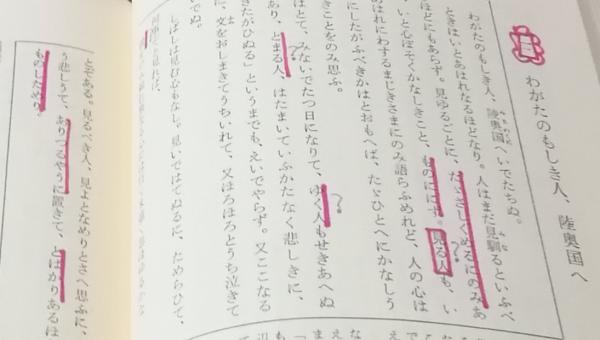 わがたのもしき人、陸奥国へ
わがたのもしき人、陸奥国へいでたちぬ。
ときはいとあはれなるほどなり。人はまだ見馴るといふべ
きほどにもあらず。見ゆるごとに、たゞさしぐめるにのみあ
り。いと心ぼそくかなしきこと、ものににず。見る人も、い
とあはれにわするまじきさまにのみ語らふめれど、人の心は
それにしたがふべきかはとおもへば、たゞひとへにかなしう
心ぼそきことをのみ思ふ。
いまはとて、みないでたつ日になりて、ゆく人もせきあへぬ
まであり、とまる人、はたまいていふかたなく悲しきに、
「時たがひぬる」といふまでも、えいでやらず。又ここなる
硯に、文をおしまきてうちいれて、又ほろほろとうち泣きて
いでぬ。
しばしは見むひもなし。見いではてぬるに、ためらひて、
とぞある。見るべき人、見よとなめりとさへ思ふに、
う悲しうて、ありつるやうに置きて、とばかりあるほ
ものしためり。